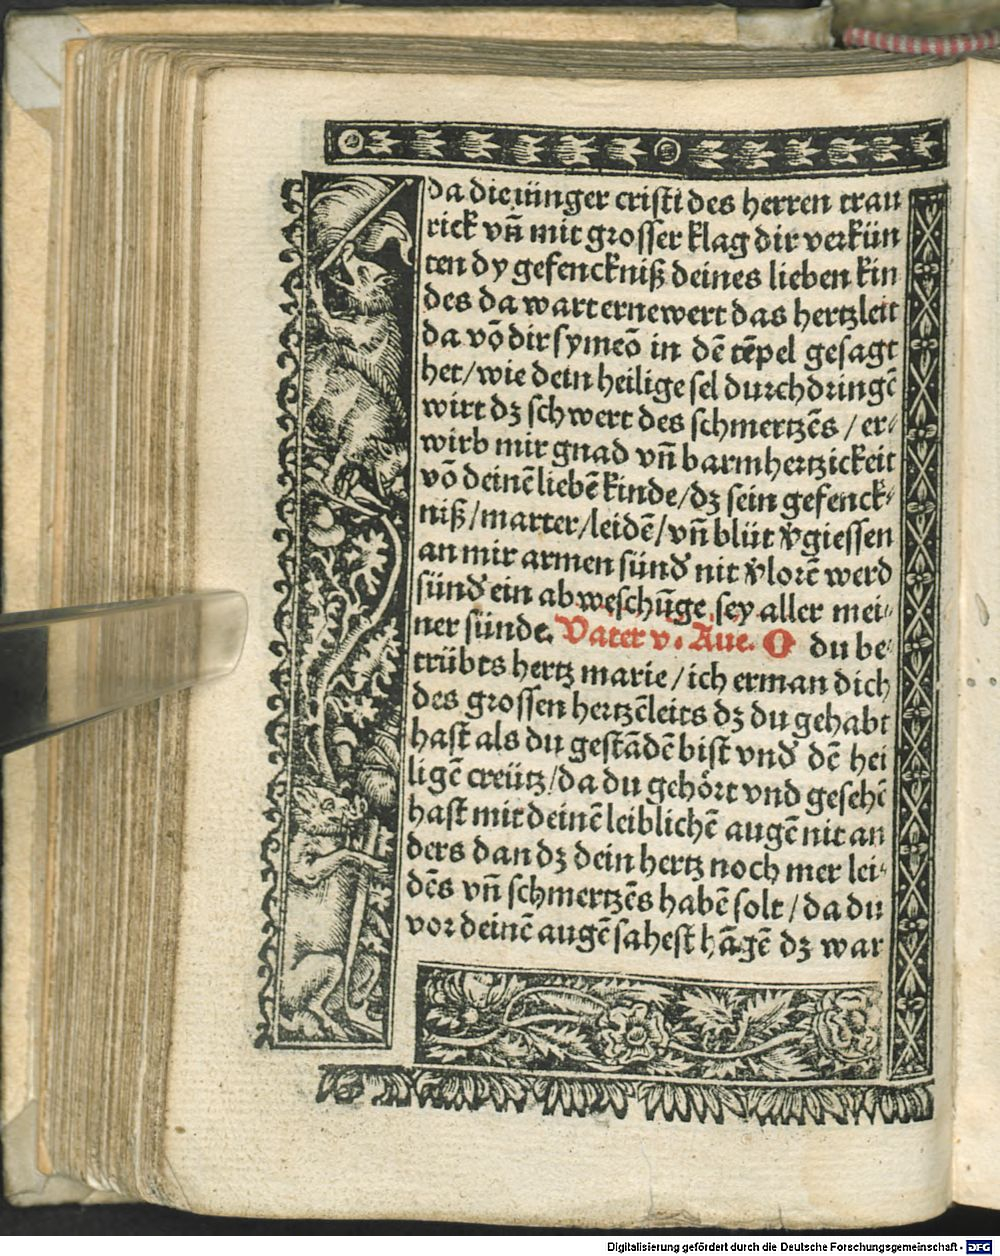 da die iünger cristi des herren trau
rick vn̄ mit grosser klag dir verkün
ten dy gefenckniß deines lieben kin
des da wart ernewert das hertzleit
da vō dir symeō in dē tēpel gesagt
het/wie dein heilige sel durchdringē
wirt dz schwert des schmertzēs/er⸗
wirb mir gnad vn̄ barmhertzickeit
vō deinē liebē kinde/dz sein gefenck⸗
niß/marter/leidē/vn̄ blüt v̉giessen
an mir armen sünd̉ nit v̉lorē werd
sünd̉ ein abweschūge sey aller mei⸗
ner sünde. Vater v. Aue. O du be⸗
trübts hertz marie/ich erman dich
des grossen hertzēleits dz du gehabt
hast als du gestādē bist vnd̉ dē hei
ligē creütz/da du gehört vnd gesehē
hast mit deinē leiblichē augē nit an
ders dan dz dein hertz noch mer lei⸗
dēs vn̄ schmertzēs habē solt/da du
vor deinē augē sahest hāgē dz war
Digitalisierung gefördert durch die Deutsche Forschungsgemeinschaft - DFG